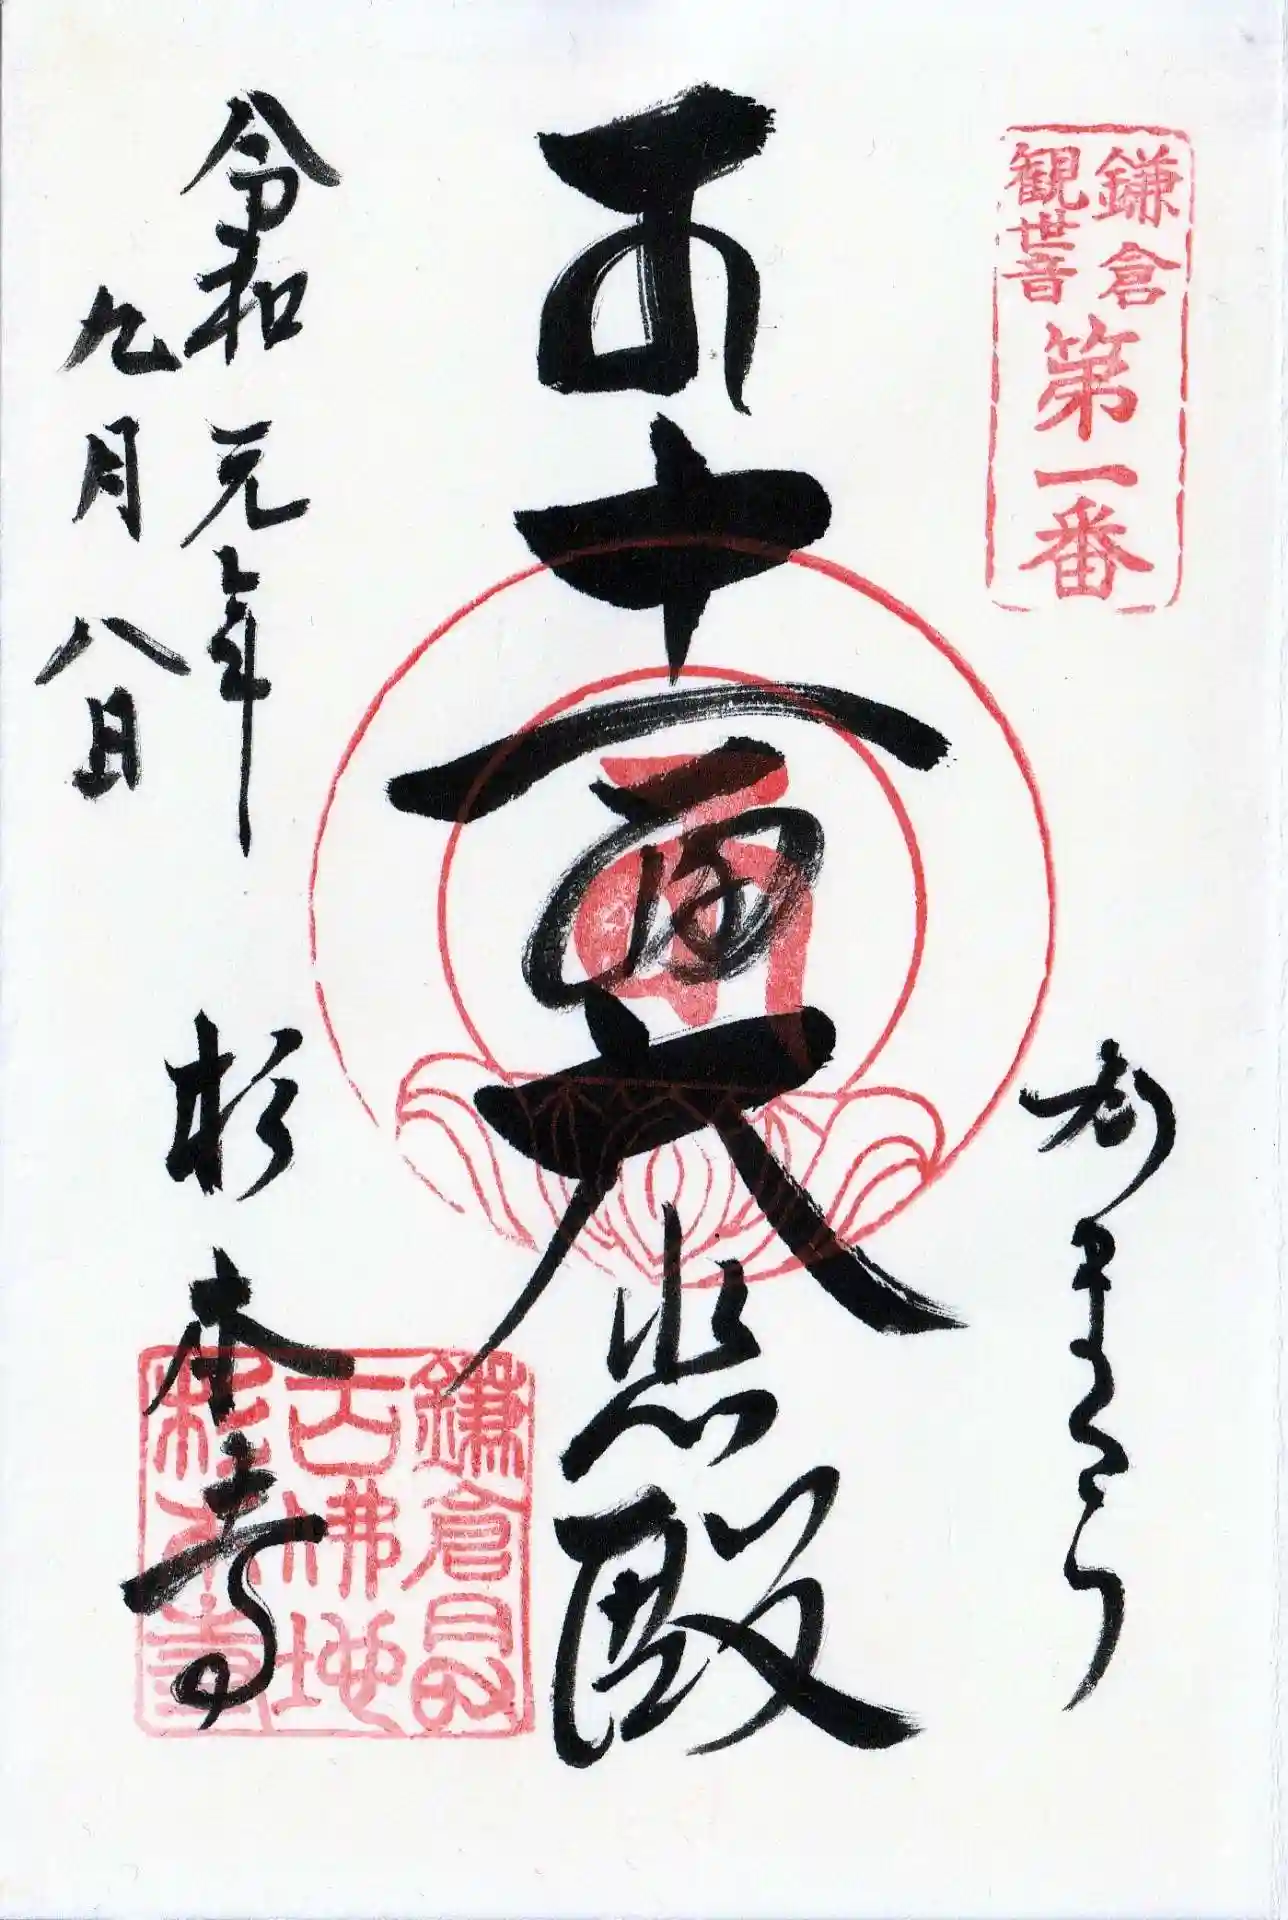 鎌倉
観世音
第一番
十一面大悲殿
令和元年
九月八日
杉本寺
鎌倉最
古佛地
杉本寺